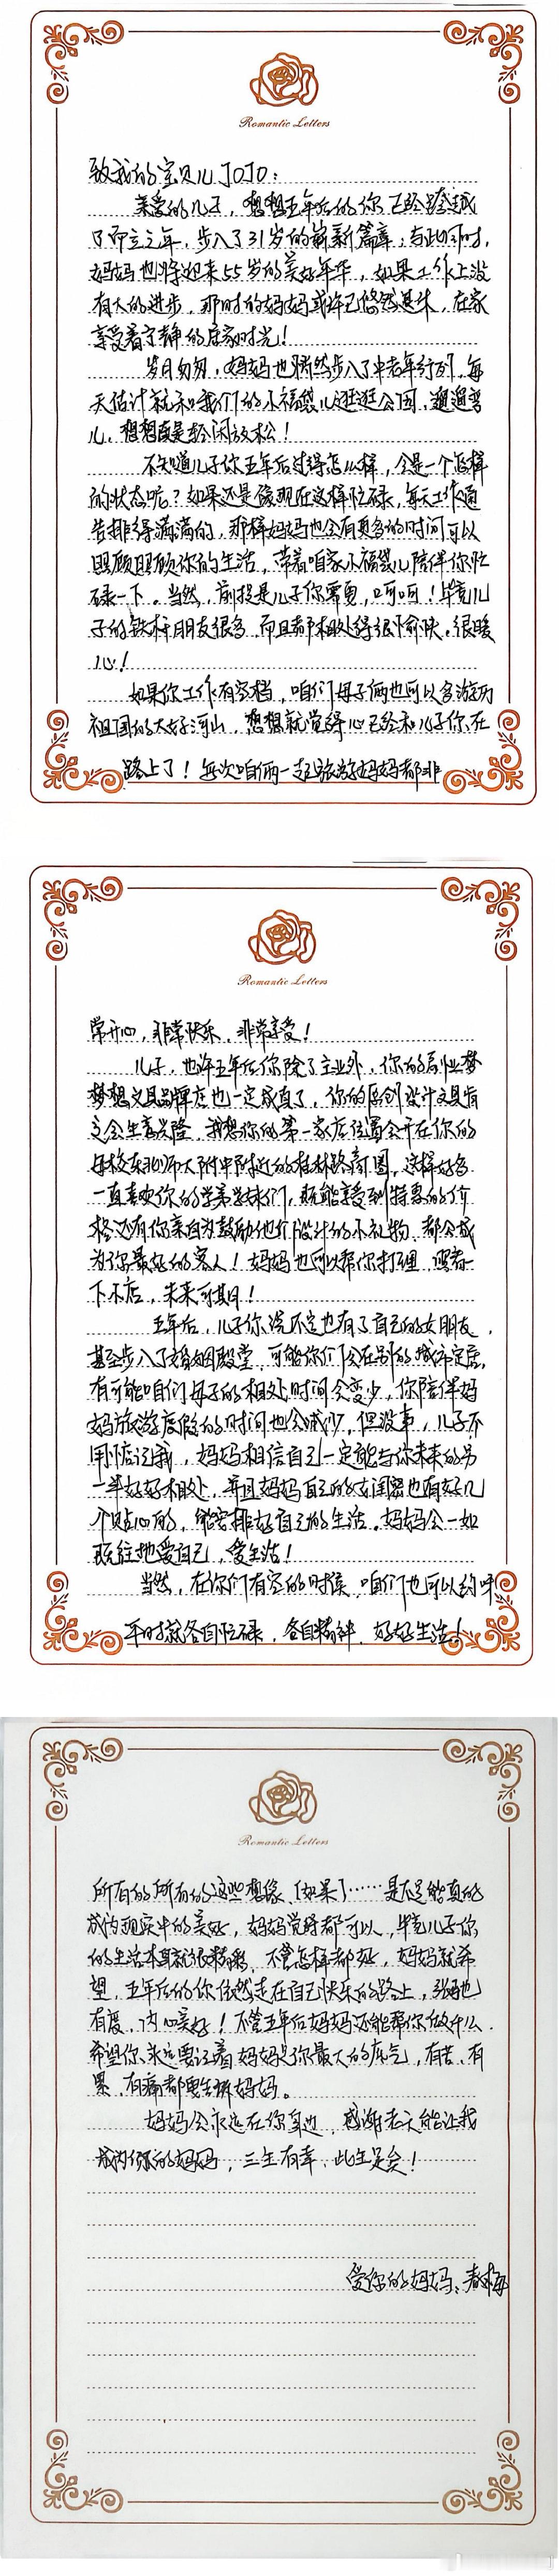 Romantic Letters
致我的宝贝儿JOJO：
亲爱的儿子，想想五年后的你已经跨越
了而立之年，步入了31岁的崭新篇章；与此同时，
妈妈也将迎来55岁的美好年华，如果工作上没
有大的进步，那时的妈妈或许已悠然退休，在家
享受着宁静的居家时光！
岁月匆匆，妈妈也悄然步入了中老年行列，每
天估计就和我们的小福袋儿逛逛公园，遛遛弯
儿，想想真是轻闲放松！
不知道儿子你五年后过得怎么样，会是一个怎样
的状态呢？如果还是像现在这样忙碌，每天工作通
告排得满满的，那样妈妈也会有更多的时间可以
照顾照顾你的生活，带着咱家小福袋儿陪伴你忙
碌一下。当然，前提是儿子你需要，呵呵！毕竟儿
子的铁杆朋友很多，而且都相处得很愉快，很暖
心！
如果你工作有空档，咱们母子俩也可以多游历
祖国的大好河山，想想就觉得心已经和儿子你在
路上了！每次咱俩一起旅游妈妈都非
Romantic Letters
常开心，非常快乐，非常享受！
儿子，也许五年后你除了主业外，你的副业梦
梦想文具品牌店也一定成真了，你的原创设计文具肯
定会生意兴隆，我想你的第一家店位置会开在你的
母校东北师大附中附近的桂林路商圈，这样好多
一直喜欢你的学弟学妹们，既能享受到特惠的价
格还有你亲自为鼓励他们设计的小礼物，都会成
为你最好的客人！妈妈也可以帮你打理，照看一
下小店，未来可期！
五年后，儿子你说不定也有了自己的女朋友，
甚至步入了婚姻殿堂，可能你们会在别的城市定居，
有可能咱们母子的相处时间会变少，你陪伴妈
妈旅游度假的时间也会减少，但没事，儿子不
用惦记我，妈妈相信自己一定能与你未来的另
一半好好相处，并且妈妈自己的女闺蜜也有好几
个贴心的，能安排好自己的生活。妈妈会一如
既往地爱自己，爱生活！
当然，在你们有空的时候，咱们也可以约呀
平时就各自忙碌，各自精神，好好生活！
Romantic Letters
所有的所有的这些想象、〔如果〕……是不是能真的
成为现实中的美好，妈妈觉得都可以，毕竟儿子你
的生活本身就很精彩，不管怎样都好，妈妈就希
望，五年后的你依然走在自己快乐的路上，张弛
有度，内心美好！不管五年后妈妈还能帮你做什么，
希望你永远要记着妈妈是你最大的底气，有苦、有
累、有痛都要告诉妈妈。
妈妈会永远在你身边，感谢老天能让我
成为你的妈妈，三生有幸，此生足矣！
爱你的妈妈：春梅